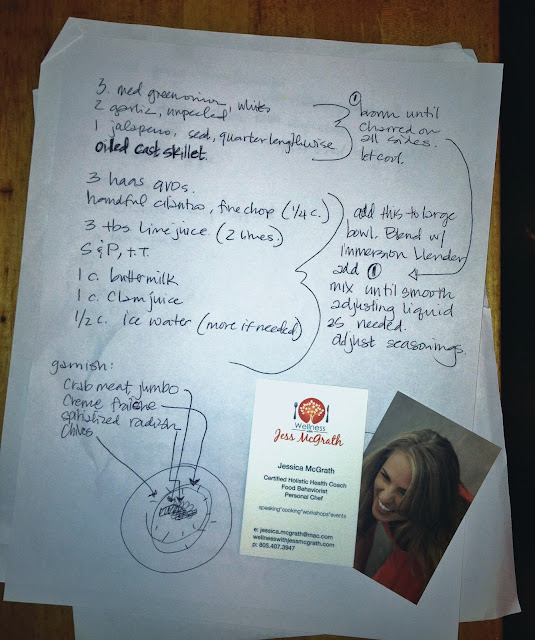 3 med green onion, whites
2 garlic, unpeeled
1 jalapeno, seed, quarter lengthwise
oiled cast skillet
① 
brown until
charred on
all sides.
let cool.
3 haas avos.
handful cilantro, fine chop (1/4 c.)
3 tbs lime juice (2 limes.)
S & P, t.T.
1 c. buttermilk
1 c. Clam juice
1/2 c. ice water (more if needed)
add this to large
bowl. Blend w/
immersion blender
add ①
mix until smooth
adjusting liquid
as needed.
adjust seasonings.
garnish:
Crab meat, jumbo
Creme fraîche
radish
Chives
Wellness
Jess McGrath
Jessica McGrath
Certified Holistic Health Coach
Food Behaviorist
Personal Chef
speaking*cooking*workshops*events
e: jessica.mcgrath@mac.com
wellnesswithjessmcgrath.com
p: 805.407.3947